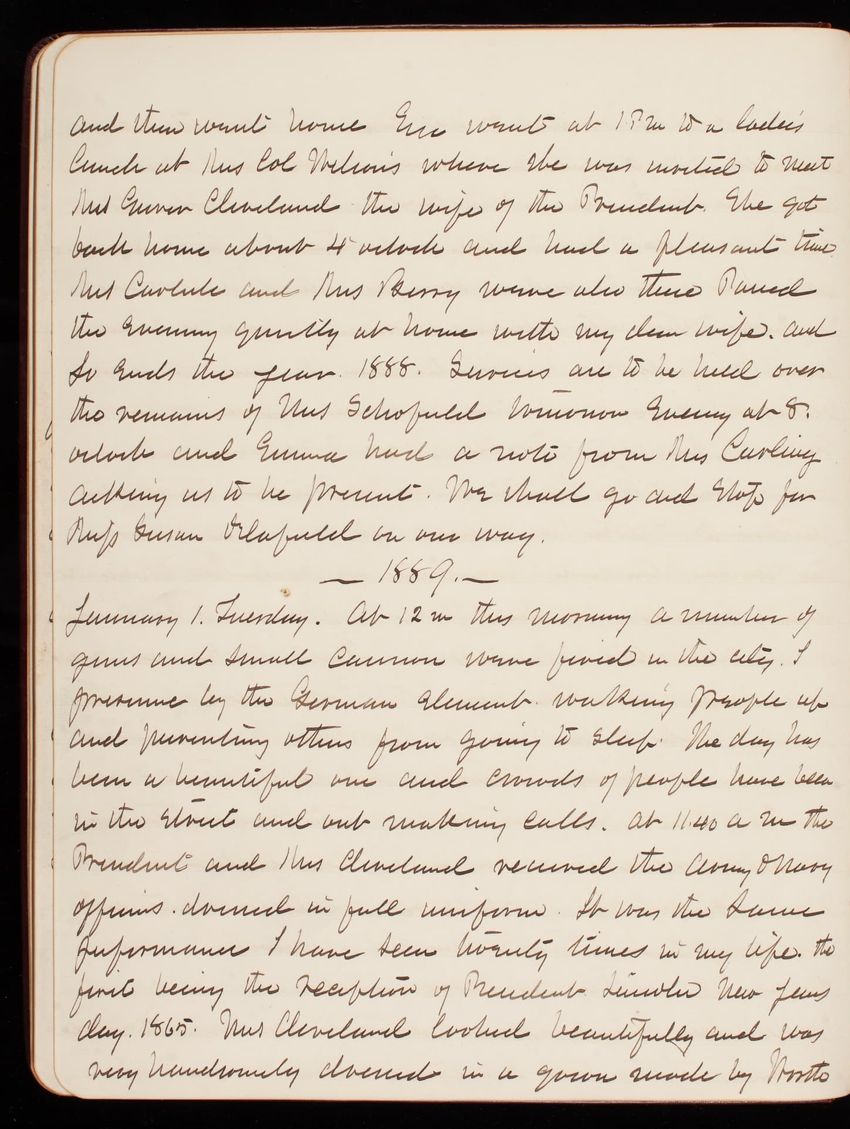 and then went home Em went at 1 P m to a ladies
lunch at Mrs Col Wilson's where she was invited to meet
Mrs Grover Cleveland the wife of the President. She got
back home about 4 oclock and had a pleasant time
Mrs Carlisle and Mrs Berry were also there Passed
the evening quietly at home with my dear wife. and
So Ends the year. 1888. Services are to be held over
the remains of Mrs Schofield tomorrow Evening at 8.
oclock and Emma had a note from Mrs
asking us to be present. We shall go and stop for
Miss Susan Delafield on our way.
— 1889. —
January 1. Tuesday. At 12 m this morning a number of
guns and small cannon were fired in the city. I
presume by the German element. waking people up
and preventing others from going to sleep. The day has
been a beautiful one and crowds of people have been
in the street and out making calls. at 11.40 a m the
President and Mrs Cleveland received the Army & Navy
officers. dressed in full uniform. It was the same
performance I have seen twenty times in my life. the
first being the reception of President Lincoln New Years
day. 1865. Mrs Cleveland looked beautifully and was
very handsomely dressed in a gown made by Worth